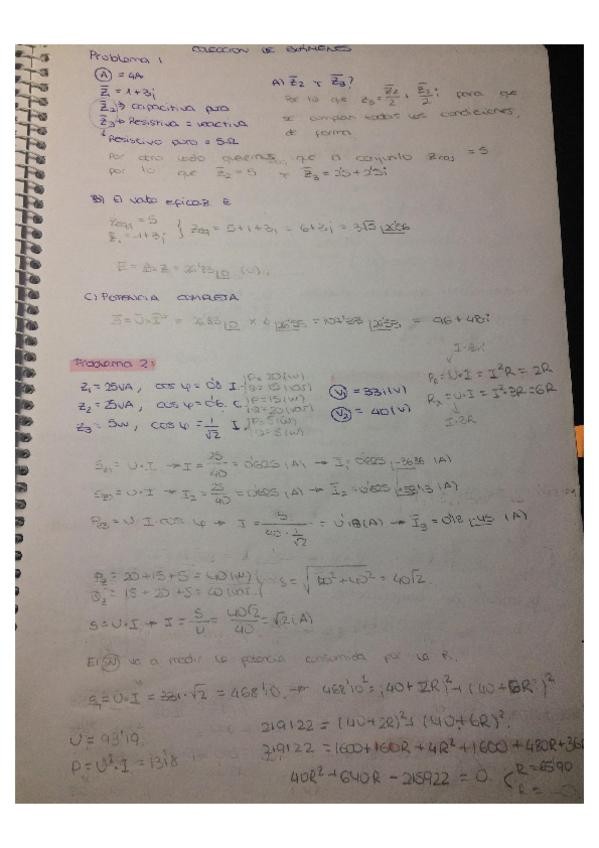 COLECCION DE EXÁMENES
Problema 1
Ⓐ = 4A
Z̄₁ = 1+3j
Z̄₂ → capacitiva pura
Z̄₃ → Resistiva = reactiva
Resistivo puro = 5Ω
A) Z̄₂ y Z̄₃?
por lo que Z₃ = Z̄₂/2 + Z̄₂/2 j para que
se cumplan todas las condiciones,
de forma
Por otro lado queremos que el conjunto = 5
por lo que Z̄₂ = 5 y Z̄₃ = 2'5 + 2'5j
B) El valor eficaz E
= 5
Z̄₁ = 1+3j } = 5+1+3j = 6+3j = 3√5
E = = 26'83 |0 (V)
C) POTENCIA COMPLETA
S̄ = Ū·Ī* = 26'83 |0 × 4 |26'55 = |26'55 = 96 + 48j
Problema 2:
Z₁ = 25VA, cos φ = 0'8 I. P = 20(W) Q = 15(VAr)
Z₂ = 25VA, cos φ = 0'6 C P = 15(W) Q = 20(VAr)
Z₃ = 5W, cos φ = 1/√2 I. P = 5(W) Q = 5(W)
V₁ = 331(V)
V₂ = 40(V)
I·2R
P_R = U·I = I²R = 2R
P_X = U·I = I²·3R = 6R
I·3R
= U·I → I = 25/40 = 0'625 (A) → Ī₁ = 0'625 (A)
= U·I → I₂ = 25/40 = 0'625 (A) → Ī₂ = 0'625 (A)
= U·I·cos φ → I = 5/(40·1/√2) = 0'18(A) → Ī₃ = 0'18 |-45 (A)
P_Z = 20+15+5 = 40(W)
Q_Z = 15-20+5 = 40(VAr) } S = √(40²+40²) = 40√2
S = U·I → I = S/U = 40√2/40 = √2(A)
El Ⓦ va a medir la potencia consumida por la R.
= U·I = 331·√2 = 468'10 → 468'10² = (40+2R)² + (40+6R)²
219122 = (40+2R)² + (40+6R)²
219122 = 1600+160R+4R²+1600+480R+36R
40R²+640R-215922 = 0 { R = 65'90
R =
U = 93'19
P = U²·I = 13'18